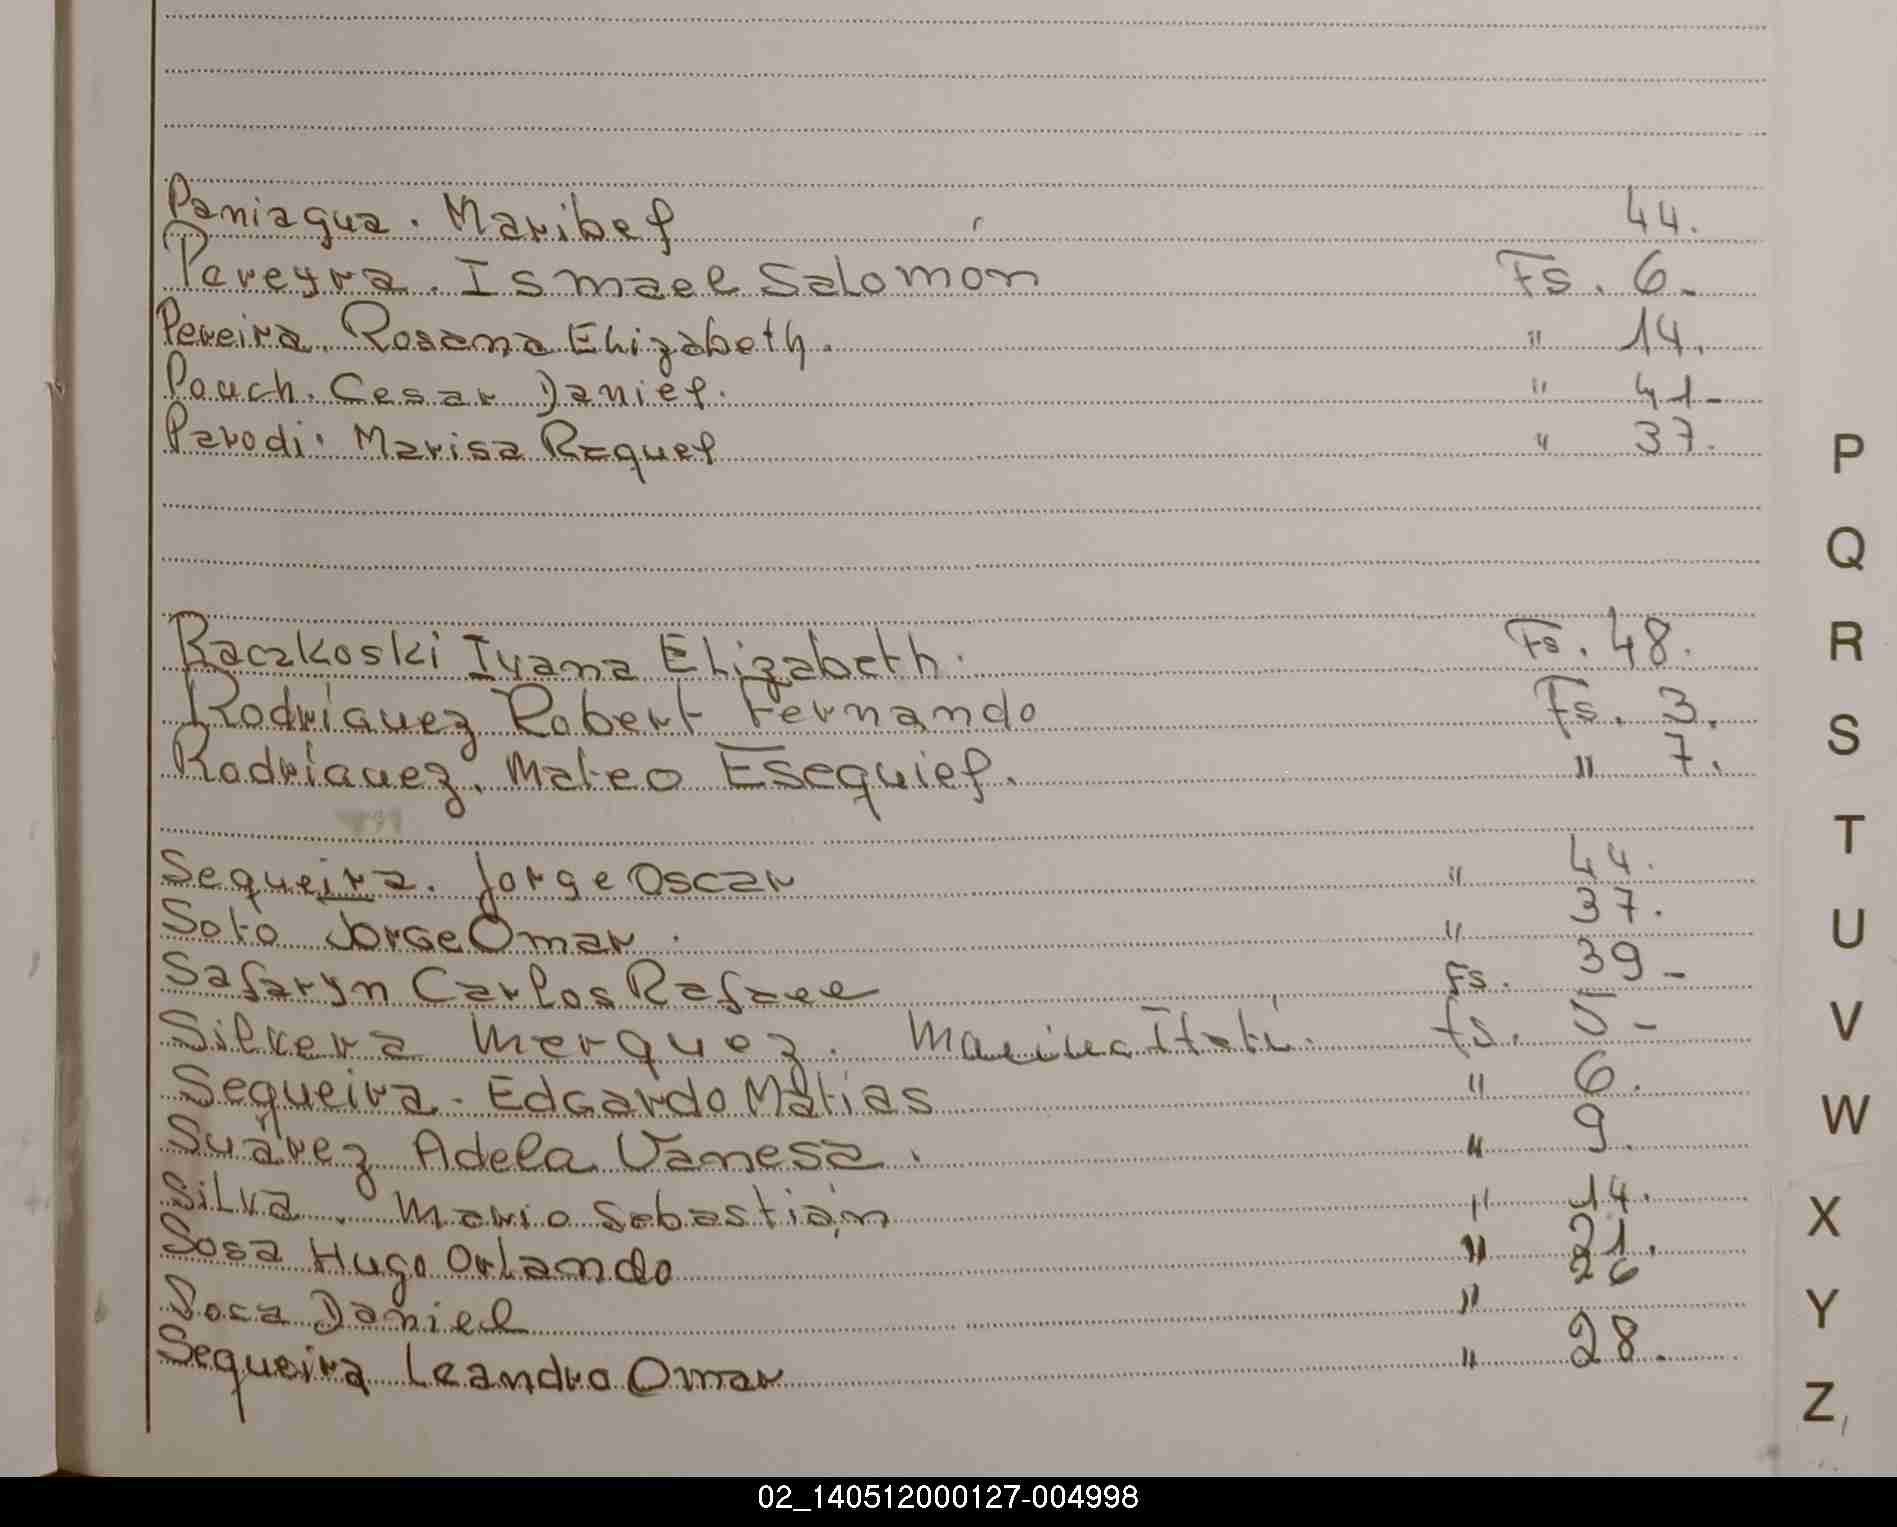 Paniagua. Maribel 44.
Pereyra. Ismael Salomón Fs. 6.
Pereira. Rosana Elizabeth. " 14.
Pouch. Cesar Daniel. " 41-
Parodi. Marisa Raquel " 37.
P
Q
Raczkoski Ivana Elizabeth. Fs. 48.
R
Rodríguez Robert Fernando Fs. 3.
S
Rodríguez. Mateo Esequiel. " 7.
T
Sequeira. Jorge Oscar " 44.
Soto Jorge Omar. " 37.
U
Safaryn Carlos Rafael Fs. 39-
Silvera Merquez. Marina Itatí. fs. 5-
V
Sequeira. Edgardo Matías " 6.
W
Suárez Adela Vanesa. " 9.
Silva. Mario Sebastián " 14.
X
Sosa Hugo Orlando " 21.
Sosa Daniel " 26
Y
Sequeira Leandro Omar " 28.
Z
02_140512000127-004998